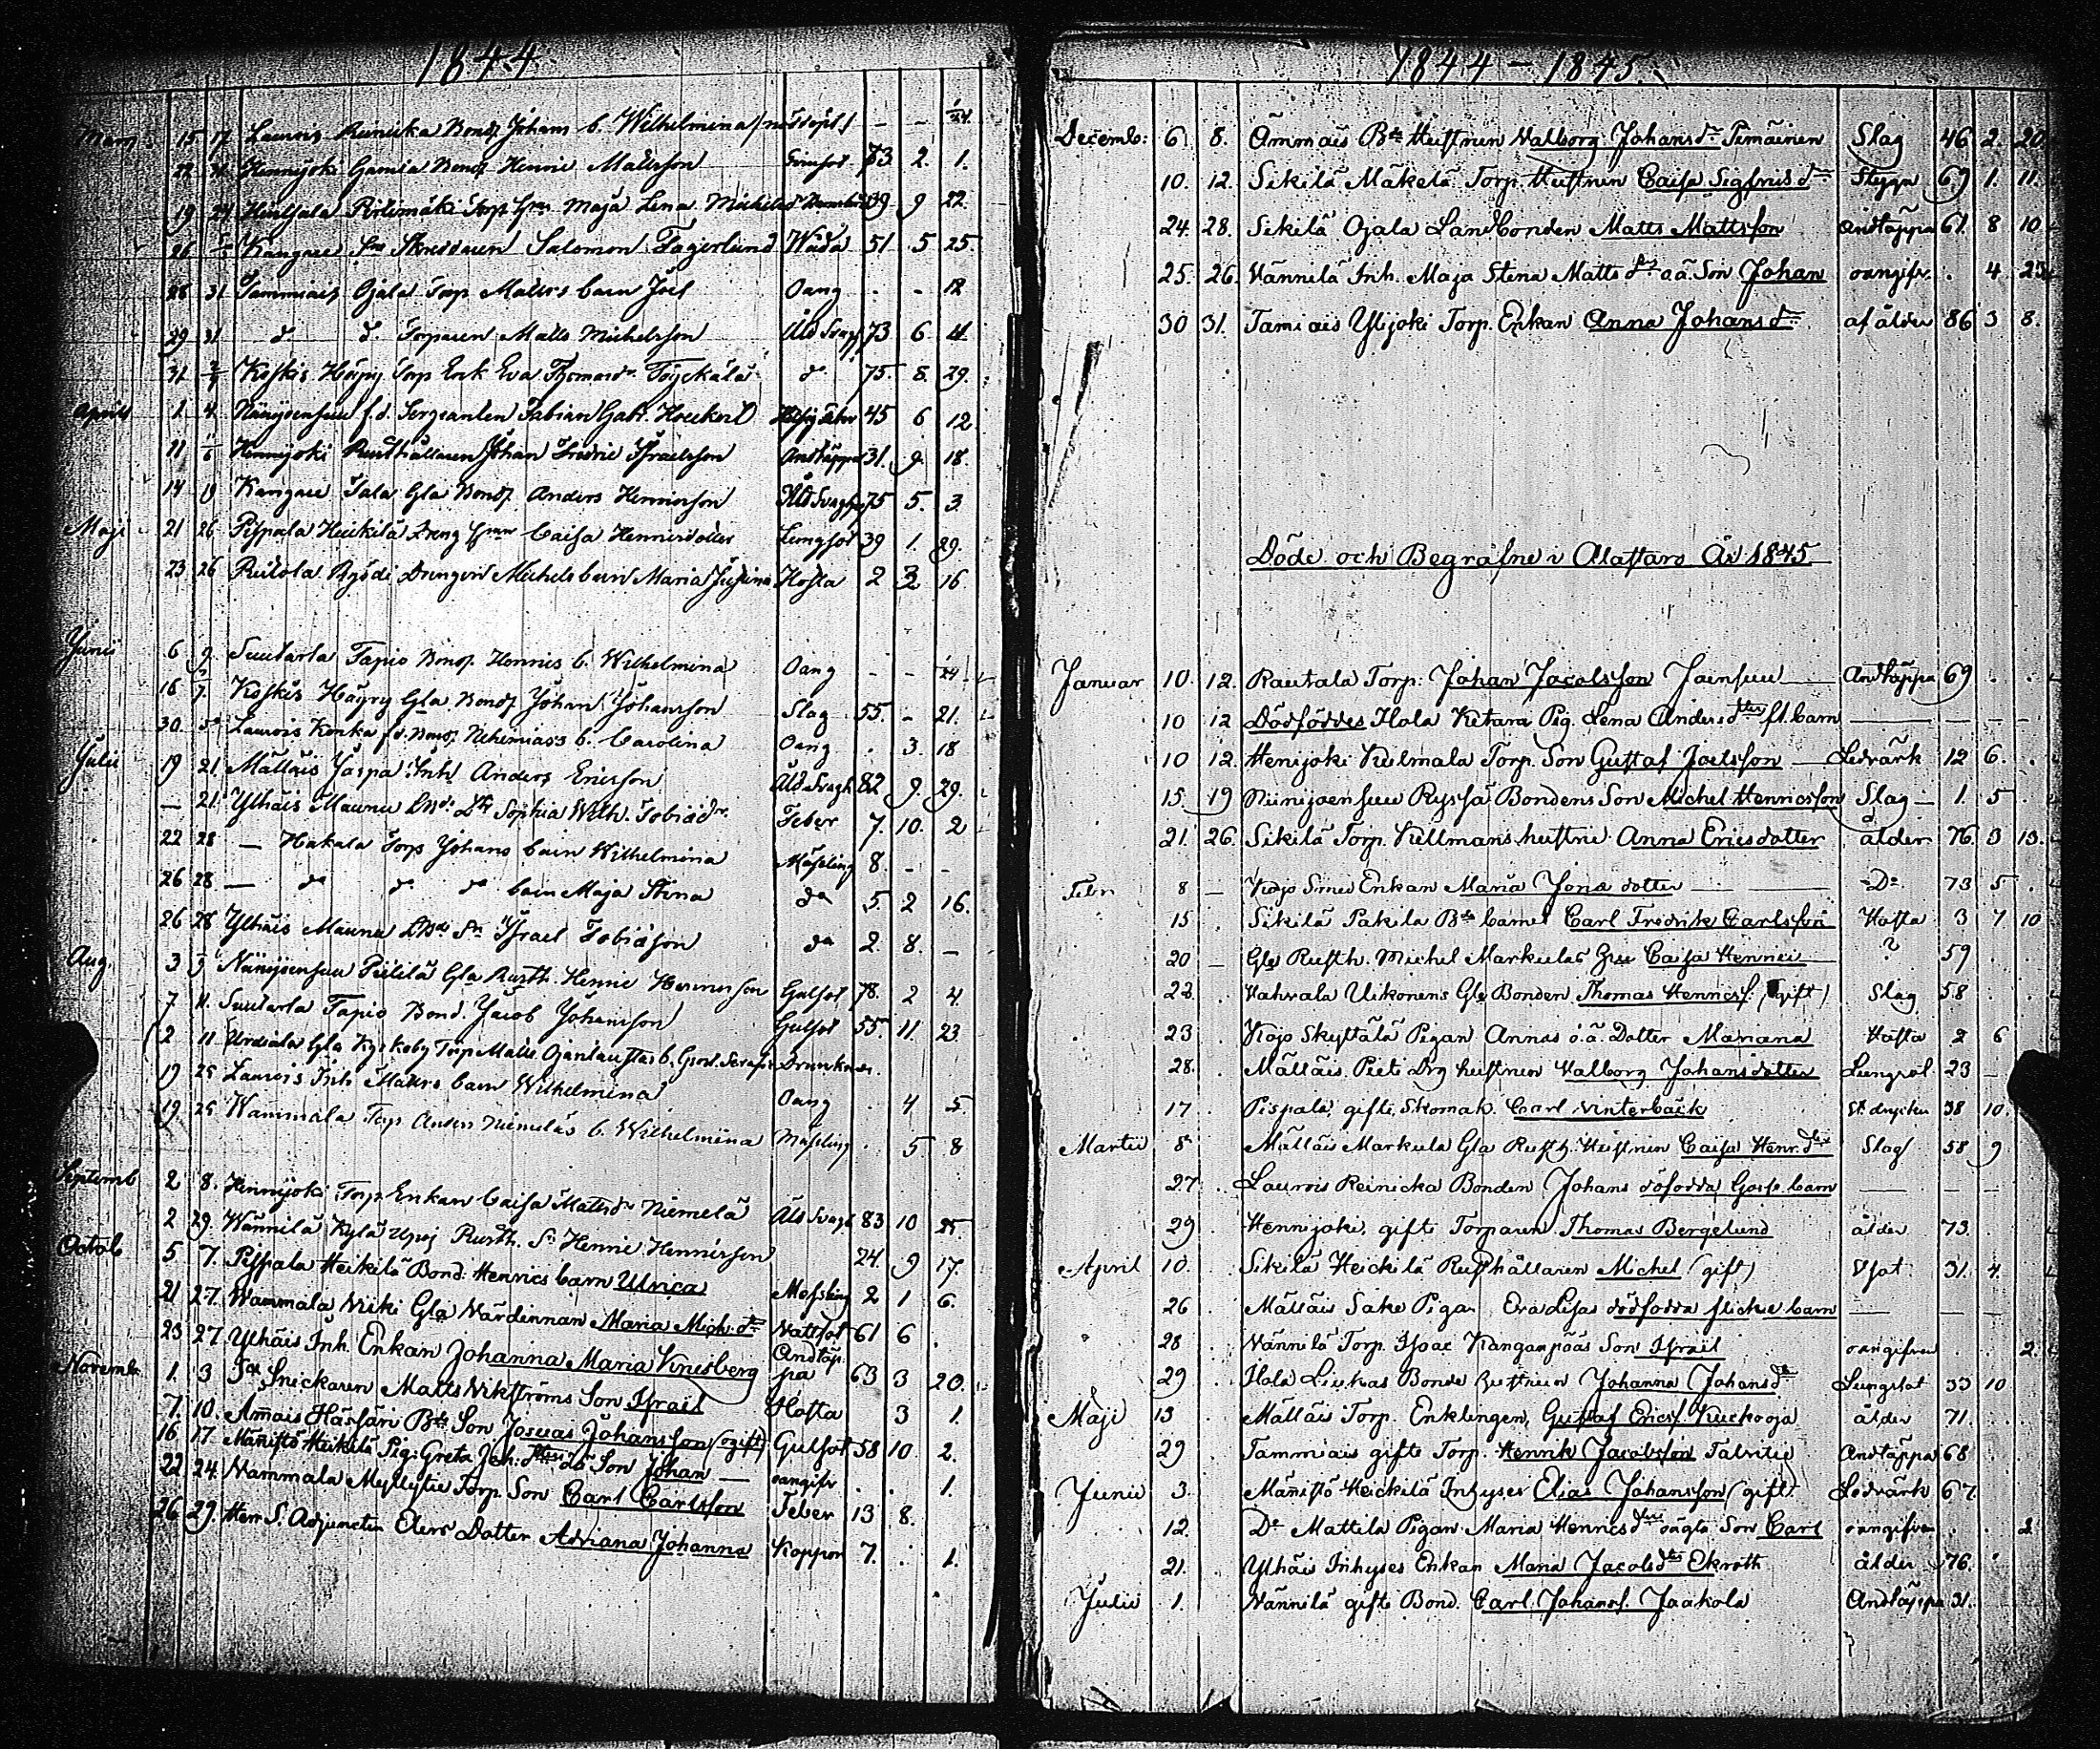 1844.
Mars 15 17 Laurois Bondr Johans b. Wilhelmina / - - 1/24
22 24 Hennijoki Gamla Bondr Henric Mattsson 73 2. 1.
19 24 Torp Maja Lena 39 9 22.
26 Kangare Salomon Fagerlund Wåda 51 5 25.
28 31 Tammiais Ojala Torp Matts barn Joel Oang - - 12
29 31 d d. Torparen Matts Michelsson Åld Svagh 73 6 4.
31 Koskis Häyry Torp Enk Eva Töyckälä d 75. 8. 29.
April 1. 4. Niinijoensuu f.d. Sergeanten Fabian Gabr. Hoeckert 45 6 12
11 Hennijoki Rusthållaren Johan Fredric Israelsson Andtäppa 31. 9. 18.
14 19 Kangare Sala Gla Bondr Anders Henricsson Åld Svaghet 75 5. 3.
Maji 21 26 Pispala Heickilä Dreng Caisa Henricsdotter Lungsot 39 1. 29.
23 26 Drengen Michels barn Maria Justina Hosta 2 2 16
Junii 6 9. Suutarla Tapio Bondr Henrics b. Wilhelmina Oang - - 1/24
16 Koskis Häyry Gla Bondr Johan Johansson Slag 55. - 21.
30. Laurois Konka f.d. Bondr Nehemias's b. Carolina Oang . 3. 18
Julii 19 21. Mältäis Jaspa Inh Anders Ericsson Åld Svagh 82 9. 29.
— 21. Ylhäis Maunu Sophia Wilh. Tobiæ dr. Feber 7. 10. 2
22 28 — Hakala Torp Johans barn Wilhelmina Mässling 8. - -
26 28 — do do do barn Maja Stina do 5. 2 16.
26 28 Ylhäis Maunu Sn Israel Tobiæson do 2. 8. —
Aug. 3 Niinijoensuu Gla Rusth. Henric Henricsson Gulsot 78. 2 4.
7 11. Suutarla Tapio Bond. Jacob Johansson Gulsot 55. 11. 23.
2 11 Gla Kyrkoby Torp Matts b.
19 25 Laurois Inh Matts barn Wilhelmina Oang . 4 5
19 25 Wammala Torp Anders Niemeläs b. Wilhelmina Mässling . 5 8
Septemb 2 8. Hennijoki Torp. Enkan Caisa Mattsdr Niemelä Åld Svagh 83 10 25.
2 29. Wännilä Kylä Rusth. Sn Henric Henricsson 24. 9 17.
Octob 5 7. Pispala Heikilä Bond. Henrics barn Ulrica Messling 2 1 6.
21 27. Wammala Wiki Gla Värdinnan Maria Mich. dr Vattsot 61 6 .
23 27. Ylhäis Inh. Enkan Johanna Maria Andtäppa 63 3 20.
Novemb. 1. 3 Snickaren Matts Wikströms Son Israil Hosta 3 1.
7. 10. Ammais Härfäri Bds Son Josuas Johansson (ogift) Gulsot 58 10 2.
16 17 Männistö Heikilä Pig. Greta Joh. dtrs Son Johan — oangifv . . 1.
22 24. Wammala Myllytie Torp. Son Carl Carlsson Feber 13 8.
26 29. Herr S. Adjuncten Elers Dotter Adriana Johanna Koppor 7. . 1.
1844 – 1845.
Decemb: 6. 8. Ämmäis Bds Hustrun Valborg Johansdr Slag 46 2. 20.
10. 12. Sikilä Mäkelä Torp. Hustrun Caisa Sigfrids dr 67 1. 11.
24. 28. Sikilä Ojala Landbonden Matts Mattsson Andtäppa 61. 8 10
25. 26. Vännilä Inh. Maja Stena Matts drs oä. Son Johan oangifv. . 4 23
30 31. Tamiais Ylijoki Torp. Enkan Anna Johans dr af ålder 86 3 8.
Döde och Begrafne i Alastaro År 1845.
Januar 10. 12. Rautala Torp: Johan Jacobsson Joensuu Andtäppa 69 . .
10 12 Dödföddes Ilola Ketara Pig. Lena Anders dtrs fl. barn — — —
10 12. Henijoki Kulmala Torp. Son Gustaf Joelsson — Ledvärk 12 6. .
15. 19 Niinijoensuu Ryssä Bondens Son Michel Henricsson Slag — 1. 5 .
21. 26. Sikilä Torp. Kellmans hustru Anna Ericsdotter ålder 76. 3 13.
Febr 8 — Kojo Enkan Maria Jonæ dotter — Do 73 5 .
15. . Sikilä Pakila Bds barnet Carl Fredrik Carlsson Hosta 3 7 10
20 — Gla Rusth. Michel Markulas Caisa Henrici ? 59 .
22. . Vahvala Uikonens Gla Bonden Thomas Henricss. (gift) Slag 58 . .
23 . Kojo Skyttälä Pigan Annas o.ä. Dotter Mariana Hosta 2 6
28. . Mältäis Pieti Drg hustrun Valborg Johansdotter Lungsot 23 —
17 . Pispala gifte Skomak. Carl Winterbäck 38 10.
Martii 8 Mältäis Markula Gla Rusth. Hustrun Caisa Henr. dtr Slag 58 9
27 . Laurois Reinicka Bonden Johans döfödda Goss. barn — — —
29 Hennijoki, gifte Torparen Thomas Bergelund ålder 73.
April 10. . Sikilä Heickilä Rusthållaren Michel (gift) 31. 4.
26 . Mältäis Sake Pigan Eva Lisas dödfödda flicke barn — — —
28 . Vännilä Torp. Isac Kanganpääs Son Israil oangifven . . 2.
29 . Ilola Liukas Bonde hustrun Johanna Johansdr Lungsot 33 10
Maji 13 . Mältäis Torp. Enklingen, Gustaf Ericss. Kuckooja ålder 71.
29 Tammiais gifte Torp. Henrik Jacobsson Talvitie Andtäppa 68
Junii 3. Männistö Heickilä Inhyses Elias Johansson (gift) Ledvärk 67.
12. Do Mattila Pigan Maria Henrics dtrs oägta Son Carl oangifven . . 2
21. . Ylhäis Inhyses Enkan Maria Jacobsdtr Ekroth ålder 76. .
Julii 1. . Vännilä gifte Bond. Carl Johanss. Jaakola Andtäppa 31.